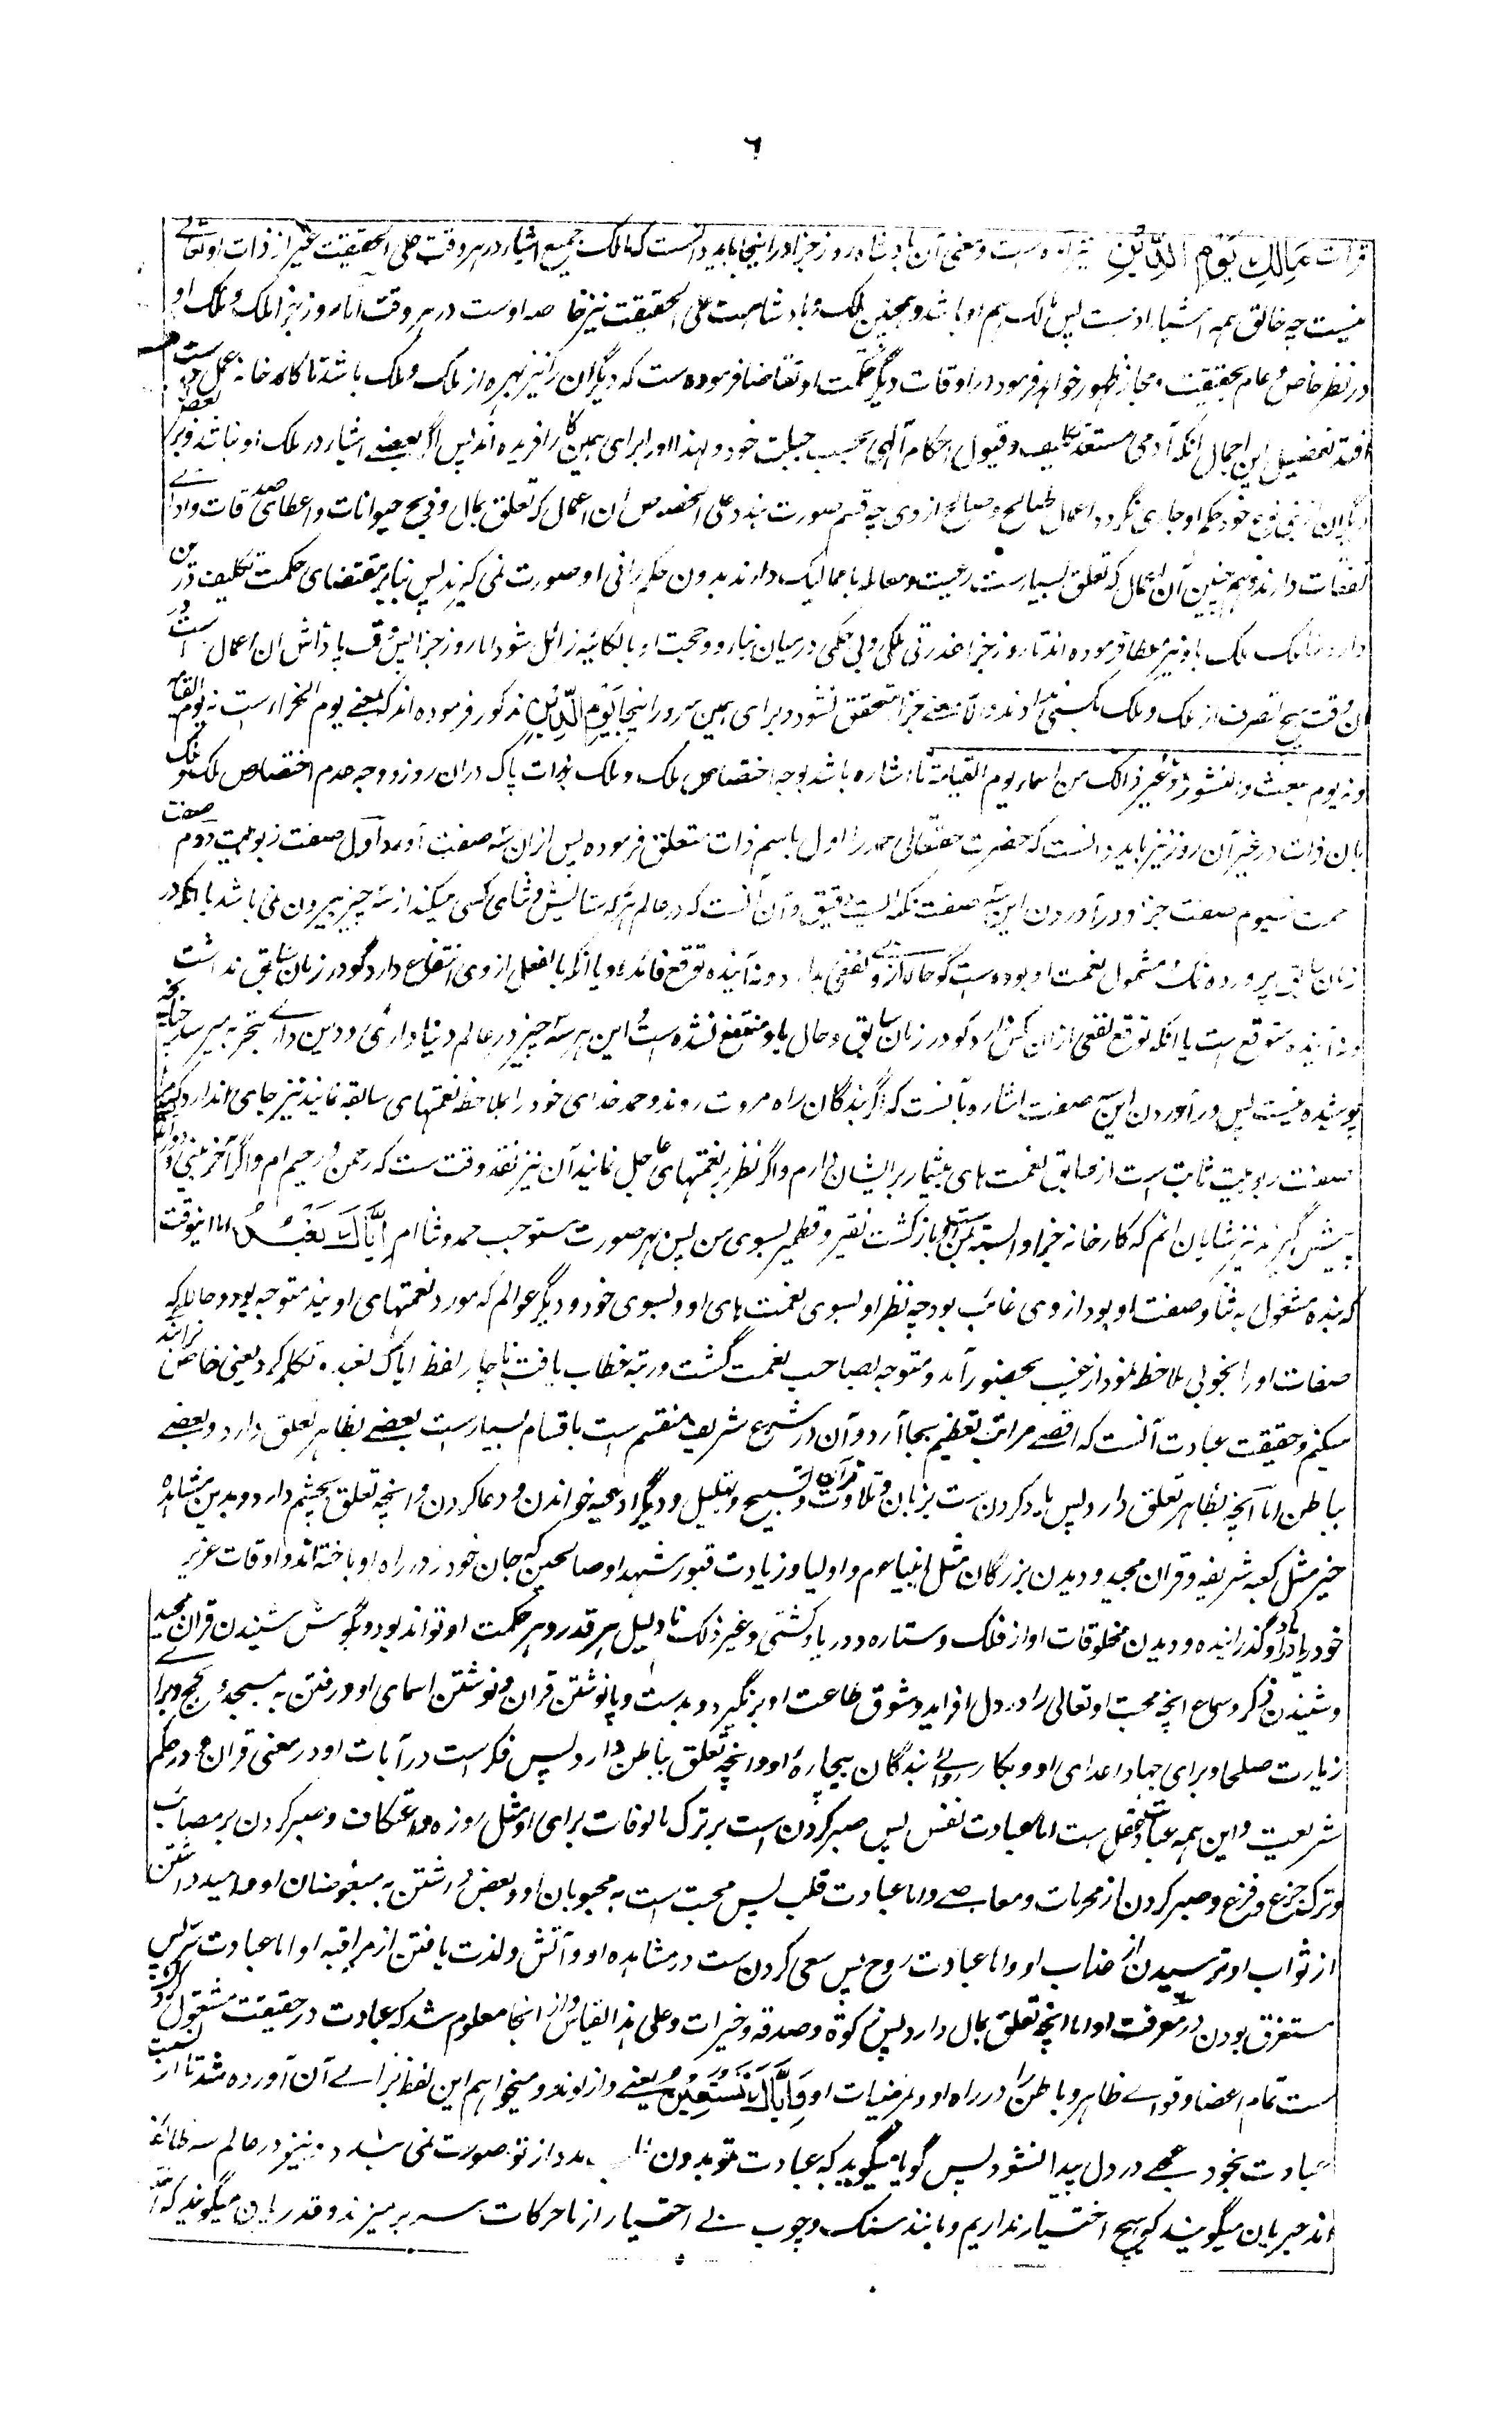 ٦
قرات مَالِكِ يَوْمِ الدِّيْنِ نیز آمده است و معنی آن بادشاه روز جزا در اینجا باید دانست که مالک جمیع اشیاء در هر وقت علی الحقیقت غیر از ذات او تعالے
نیست چه خالق همه اشیاء اوست پس مالک هم او باشد و همچنین ملک و بادشاهت علی الحقیقت نیز خاصه اوست در هر وقت اما روز جزا ملک و ملک او
در نظر خاص و عام بحقیقت و مجاز ظهور خواهد فرمود در اوقات دیگر حکمت او تقاضا فرموده ست که دیگران را نیز بهره از ملک و ملک باشد تا کارخانه عمل
افتد تفصیل این اجمال آنکه آدمی مستعد تکلیف و قبول احکام آلهی بحسب جبلت خود و لهذا او را برای همین کار آفریده اند پس اگر بعضے اشیاء در ملک او نباشد و بر بعض
دیگران از بنی نوع خود حکم او جاری نگردد اعمال صالح از وی چه قسم صورت بندد علی الخصوص آن اعمال که تعلق بمال و ذبح حیوانات و اعطای صدقات و ادای
نفقات دارند و همچنین آن اعمال که تعلق بسیاست رعیت و معامله با ممالیک دارند بدون حکمرانی او صورت نمی گیرند پس بنابر مقتضای حکمت تکلیف درین
دار دنیا ملک و ملک باو نیز عطا فرموده اند تا روز جزا عذر بی ملکی و بی حکمی درمیان نیارد و حجت او بالکلیه زائل شود اما روز جزا پس وقت پاداش آن اعمال ست در
آن وقت هیچ تصرف از ملک و ملک بکسی ندادند و الا معنے جزا متحقق نشود و برای همین سر در اینجا يَوْمِ الدِّيْنِ مذکور فرموده اند که بمعنے یوم الجزاء ست نه یوم القیام
و نه یوم بعث و النشور و غیر ذالک من اسماء یوم القیامة تا اشاره باشد بوجه اختصاص ملک و ملک بذات پاک در آن روز و وجه عدم اختصاص ملک و ملک
بآن ذات در غیر آن روز نیز باید دانست که حضرت حقتعالی حمد را اول باسم ذات متعلق فرموده پس از آن سه صفت آورد اول صفت ربوبیت دوم صفت
رحمت سیوم صفت جزا و در آوردن این سه صفت نکته ایست دقیق و آن آنست که در عالم هر که ستایش و ثنای کسی میکند از سه چیز بیرون نمی باشد یا آنکه در
زمان سابق پرورده نمک و مشمول نعمت او بوده ست گو حالا از وے نفعی ندارد و نه آینده توقع فائده و یا آنکه بالفعل از وی انتفاع دارد گو در زمان سابق نداشت
و نه آینده متوقع است یا آنکه توقع نفعی از آن کس دارد گو در زمان سابق و حال باو منتفع نشده است و این هر سه چیز در عالم دنیا داری و دین داری بتجربه میرسد چنانچه
پوشیده نیست پس در آوردن این سه صفت اشاره بآنست که اگر بندگان راه مروت روند و حمد خدای خود را بملاحظه نعمتهای سابقه نمایند نیز جای آن دارد که مرا
صفت ربوبیت ثابت است از سابق نعمت های بیشمار بر ایشان دارم و اگر نظر بنعمتهای عاجل نمایند آن نیز نقد وقت ست که رحمن و رحیم ام و اگر آخر بینی و دوراندیشی
پیش گیرند نیز شایان آنم که کارخانه جزا وابسته بمن ست و بازگشت نقیر و قطمیر بسوی من پس بهر صورت مستوجب حمد و ثنا ام إِيَّاكَ نَعْبُدُ تا اینوقت
که بنده مشغول به ثنا و صفت او بود از وی غائب بود چه نظر او بسوی نعمت های او و بسوی خود و دیگر عوالم که مورد نعمتهای اویند متوجه بود و حالا که
صفات او را بخوبی ملاحظه نمود از غیب بحضور آمد و متوجه بصاحب نعمت گشت و رتبه خطاب یافت ناچار لفظ ایاک نعبد تکلم کرد یعنی خاص ترا بندگی
میکنیم و حقیقت عبادت آنست که اقصے مراتب تعظیم بجا آرد و آن در شرع شریف منقسم است باقسام بسیار است بعضے بظاهر تعلق دارد و بعضے
بباطن اما آنچه بظاهر تعلق دارد پس یاد کردن ست بزبان و تلاوت قرآن و تسبیح و تهلیل و دیگر ادعیه خواندن و دعا کردن و آنچه تعلق بچشم دارد دیدن مشاهد
خیر مثل کعبه شریفه و قران مجید و دیدن بزرگان مثل انبیا عم و اولیا و زیادت قبور شهدا و صالحین که جان خود را در راه او باخته اند و اوقات عزیز
خود بیاد او گذرانیده و دیدن مخلوقات او از فلک و ستاره و دریا و کشتی و غیر ذلک تا دلیل بر قدر و بر حکمت او تواند بود و بگوش شنیدن قران مجید
و شنیدن ذکر و سماع آنچه محبت او تعالی را در دل افزاید و شوق طاعت او برنگیرد و بدست و پا نوشتن قران و نوشتن اسمای او و رفتن به مسجد و حج و برای
زیارت صلحا و برای جهاد اعدای او و بکار روائے بندگان بیچاره او و آنچه تعلق بباطن دارد پس فکر است در آیات او در معنی قران و در حکم
شریعت و این همه عبادت عقل ست اما عبادت نفس پس صبر کردن است بر ترک مالوفات برای او مثل روزه و اعتکاف و صبر کردن بر مصائب
و ترک جزع و فزع و صبر کردن از محرمات و معاصے و اما عبادت قلب پس محبت است به محبوبان او و بغض داشتن به مبغوضان او و امید داشتن
از ثواب او و ترسیدن از عذاب او و اما عبادت روح پس سعی کردن ست در مشاهده او و آتش و لذت یافتن از مراقبه او اما عبادت سر پس
مستغرق بودن در معرفت او اما آنچه تعلق بمال دارد پس زکوة و صدقه و خیرات و علی هذا القیاس و از اینجا معلوم شد که عبادت در حقیقت مشغول کردن
ست تمام اعضا و قوای ظاهر و باطن را در راه او و مرضیات او وَإِيَّاكَ نَسْتَعِيْنُ یعنے و از تو مدد میخواهیم این لفظ برائے آن آورده شد تا از نسبت
عبادت بخود عجبے در دل پیدا نشود پس گویا میگوید که عبادت تو بدون مدد از تو صورت نمی بندد و نیز در عالم سه طائفه
اند جبریان میگویند که هیچ اختیار نداریم و مانند سنگ و چوب بے اختیار از ما حرکات سر بر میزند و قدریان میگویند که